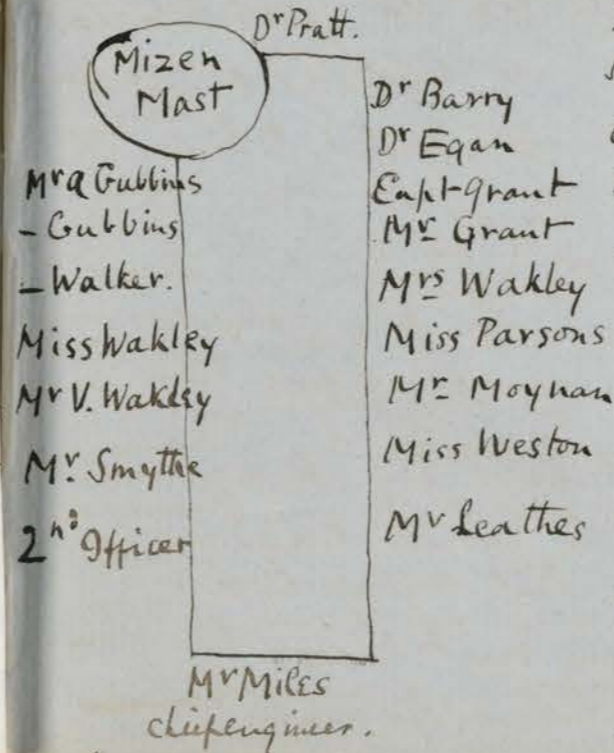 Dr Pratt.
Mizen
Mast
Mr A Gubbins
- Gubbins
- Walker.
Miss Wakley
Mr V. Wakley
Mr Smythe
2nd Officer
Dr Barry
Dr Egan
Capt Grant
Mr Grant
Mrs Wakley
Miss Parsons
Mr Moynan
Miss Weston
Mr Leathes
Mr Miles
chief engineer.